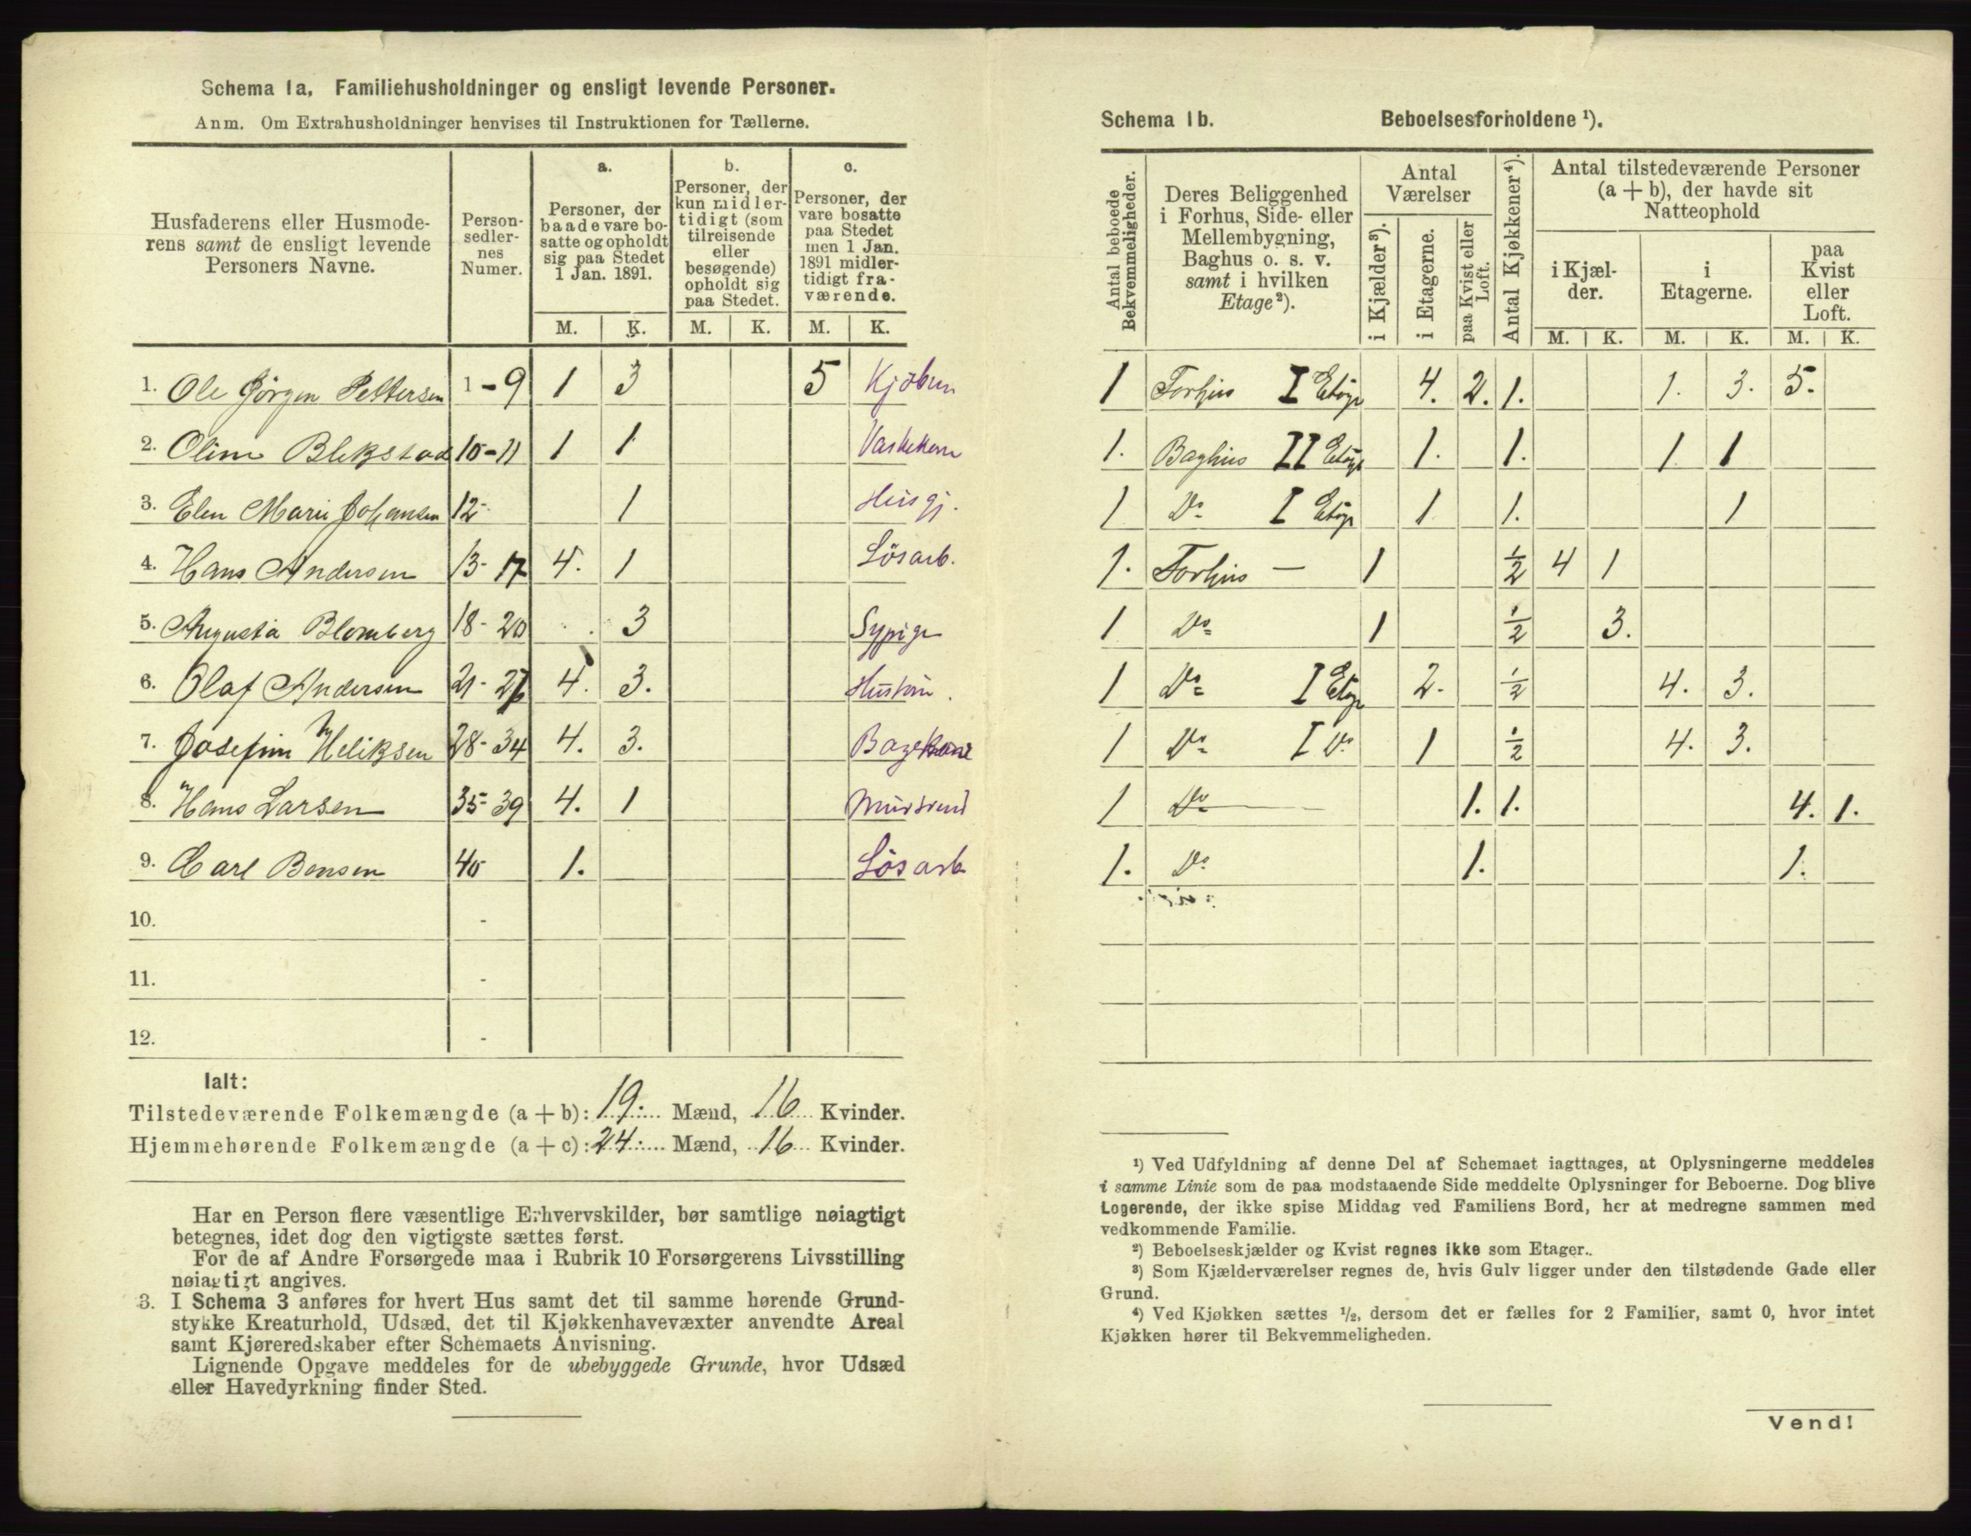 Schema 1a. Familiehusholdninger og ensligt levende Personer.
Anm. Om Extrahusholdninger henvises til Instruktionen for Tællerne.
Husfaderens eller Husmoderens samt de ensligt levende Personers Navne.
Personsedlernes Numer.
a. Personer, der baade vare bosatte og opholdt sig paa Stedet 1 Jan. 1891.
b. Personer, der kun midlertidigt (som tilreisende eller besøgende) opholdt sig paa Stedet.
c. Personer, der vare bosatte paa Stedet men 1 Jan. 1891 midlertidigt fraværende.
M. K. M. K. M. K.
1. Ole Jörgen Pettersen 1-9 1 3 5 Kjöbm
2. Oline Blekstad 10-11 1 1 Vaskekone
3. Elen Marie Johansen 12- 1 Husgj.
4. Hans Andersen 13-17 4. 1 Lösarb.
5. Augusta Blomberg 18-20 3 Sypige
6. Olaf Andersen 21-27 4. 3.
7. Josefine Heliksen 28-34 4. 3. Bagekone
8. Hans Larsen 35-39 4. 1 Mursvend
9. Carl Bensen 40 1. Lösarb
10. -
11. -
12. -
Ialt:
Tilstedeværende Folkemængde (a + b): 19. Mænd, 16 Kvinder.
Hjemmehørende Folkemængde (a + c): 24. Mænd, 16 Kvinder.
Har en Person flere væsentlige Erhvervskilder, bør samtlige nøiagtigt
betegnes, idet dog den vigtigste sættes først.
For de af Andre Forsørgede maa i Rubrik 10 Forsørgerens Livsstilling
nøiagtigt angives.
3. I Schema 3 anføres for hvert Hus samt det til samme hørende Grund-
stykke Kreaturhold, Udsæd, det til Kjøkkenhavevæxter anvendte Areal
samt Kjøreredskaber efter Schemaets Anvisning.
Lignende Opgave meddeles for de ubebyggede Grunde, hvor Udsæd
eller Havedyrkning finder Sted.
Schema 1b. Beboelsesforholdene ¹).
Antal beboede Bekvemmeligheder.
Deres Beliggenhed i Forhus, Side- eller Mellembygning, Baghus o. s. v. samt i hvilken Etage ²).
Antal Værelser
i Kjælder ³).
i Etagerne.
paa Kvist eller Loft.
Antal Kjøkkener ⁴).
Antal tilstedeværende Personer (a + b), der havde sit Natteophold
i Kjælder.
i Etagerne.
paa Kvist eller Loft.
M. K. M. K. M. K.
1 Forhus I Etage 4. 2. 1. 1. 3. 5.
1. Baghus II Etage 1. 1. 1 1
1 Do I Etage 1 1. 1
1. Forhus — 1 ½ 4 1
1 Do 1 ½ 3.
1 Do I Etage 2. ½ 4. 3.
1 Do I Do 1 ½ 4. 3.
1 Do 1. 1. 4. 1.
1. Do 1. 1.
¹) Ved Udfyldning af denne Del af Schemaet iagttages, at Oplysningerne meddeles
i samme Linie som de paa modstaaende Side meddelte Oplysninger for Beboerne. Dog blive
Logerende, der ikke spise Middag ved Familiens Bord, her at medregne sammen med
vedkommende Familie.
²) Beboelseskjælder og Kvist regnes ikke som Etager.
³) Som Kjælderværelser regnes de, hvis Gulv ligger under den tilstødende Gade eller
Grund.
⁴) Ved Kjøkken sættes ½, dersom det er fælles for 2 Familier, samt 0, hvor intet
Kjøkken hører til Bekvemmeligheden.
Vend!